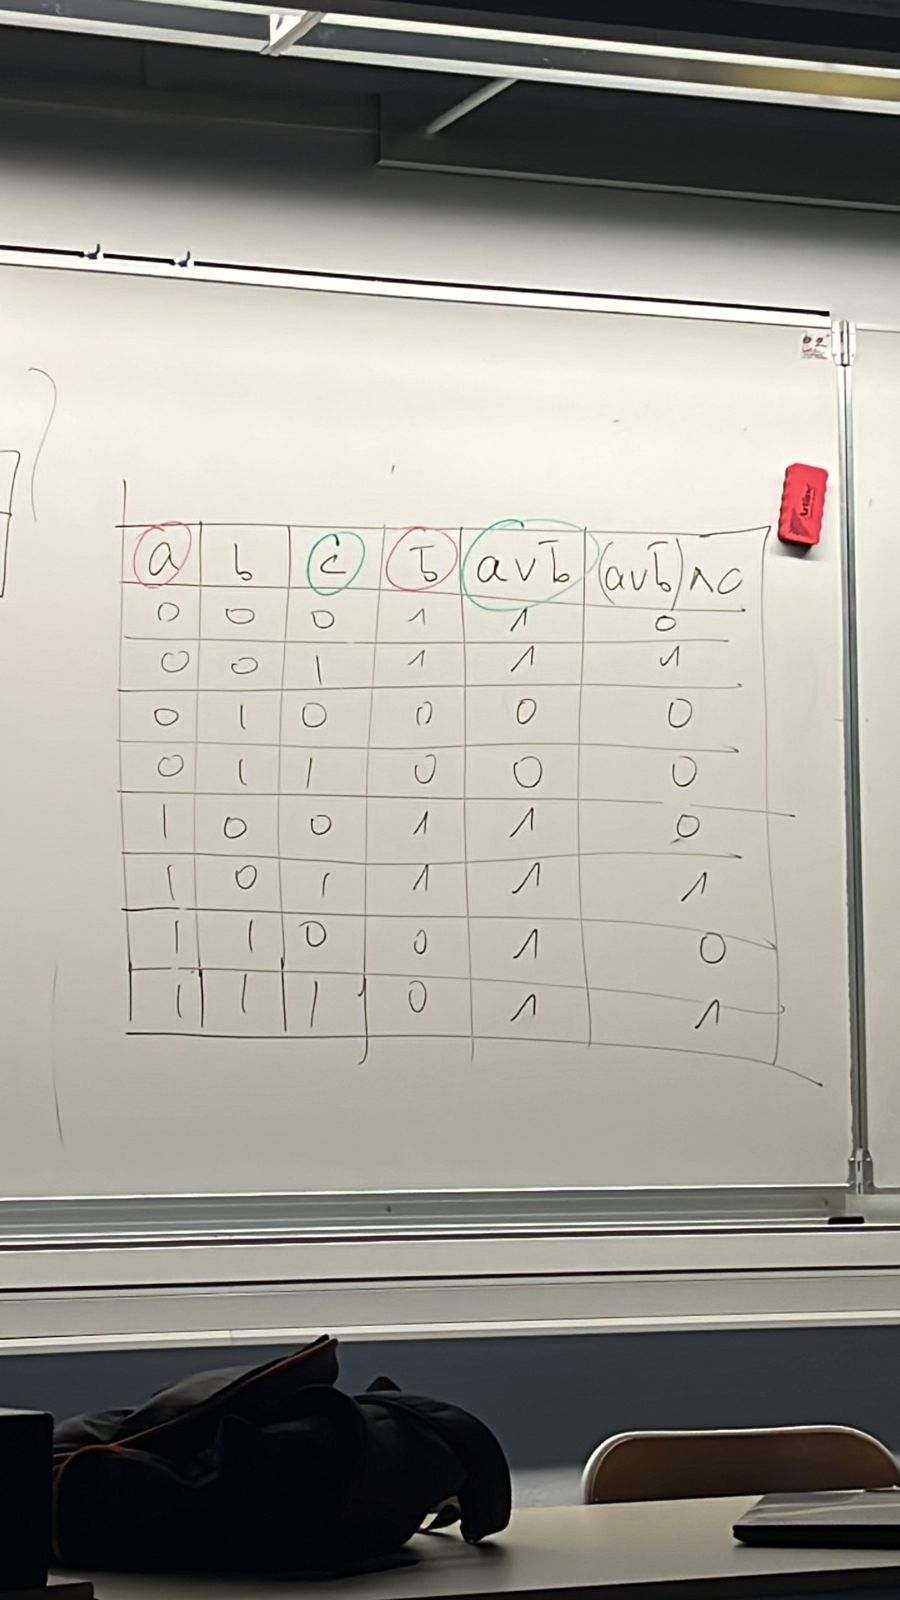 a b c b̅ a∨b̅ (a∨b̅)∧c
0 0 0 1 1 0
0 0 1 1 1 1
0 1 0 0 0 0
0 1 1 0 0 0
1 0 0 1 1 0
1 0 1 1 1 1
1 1 0 0 1 0
1 1 1 0 1 1